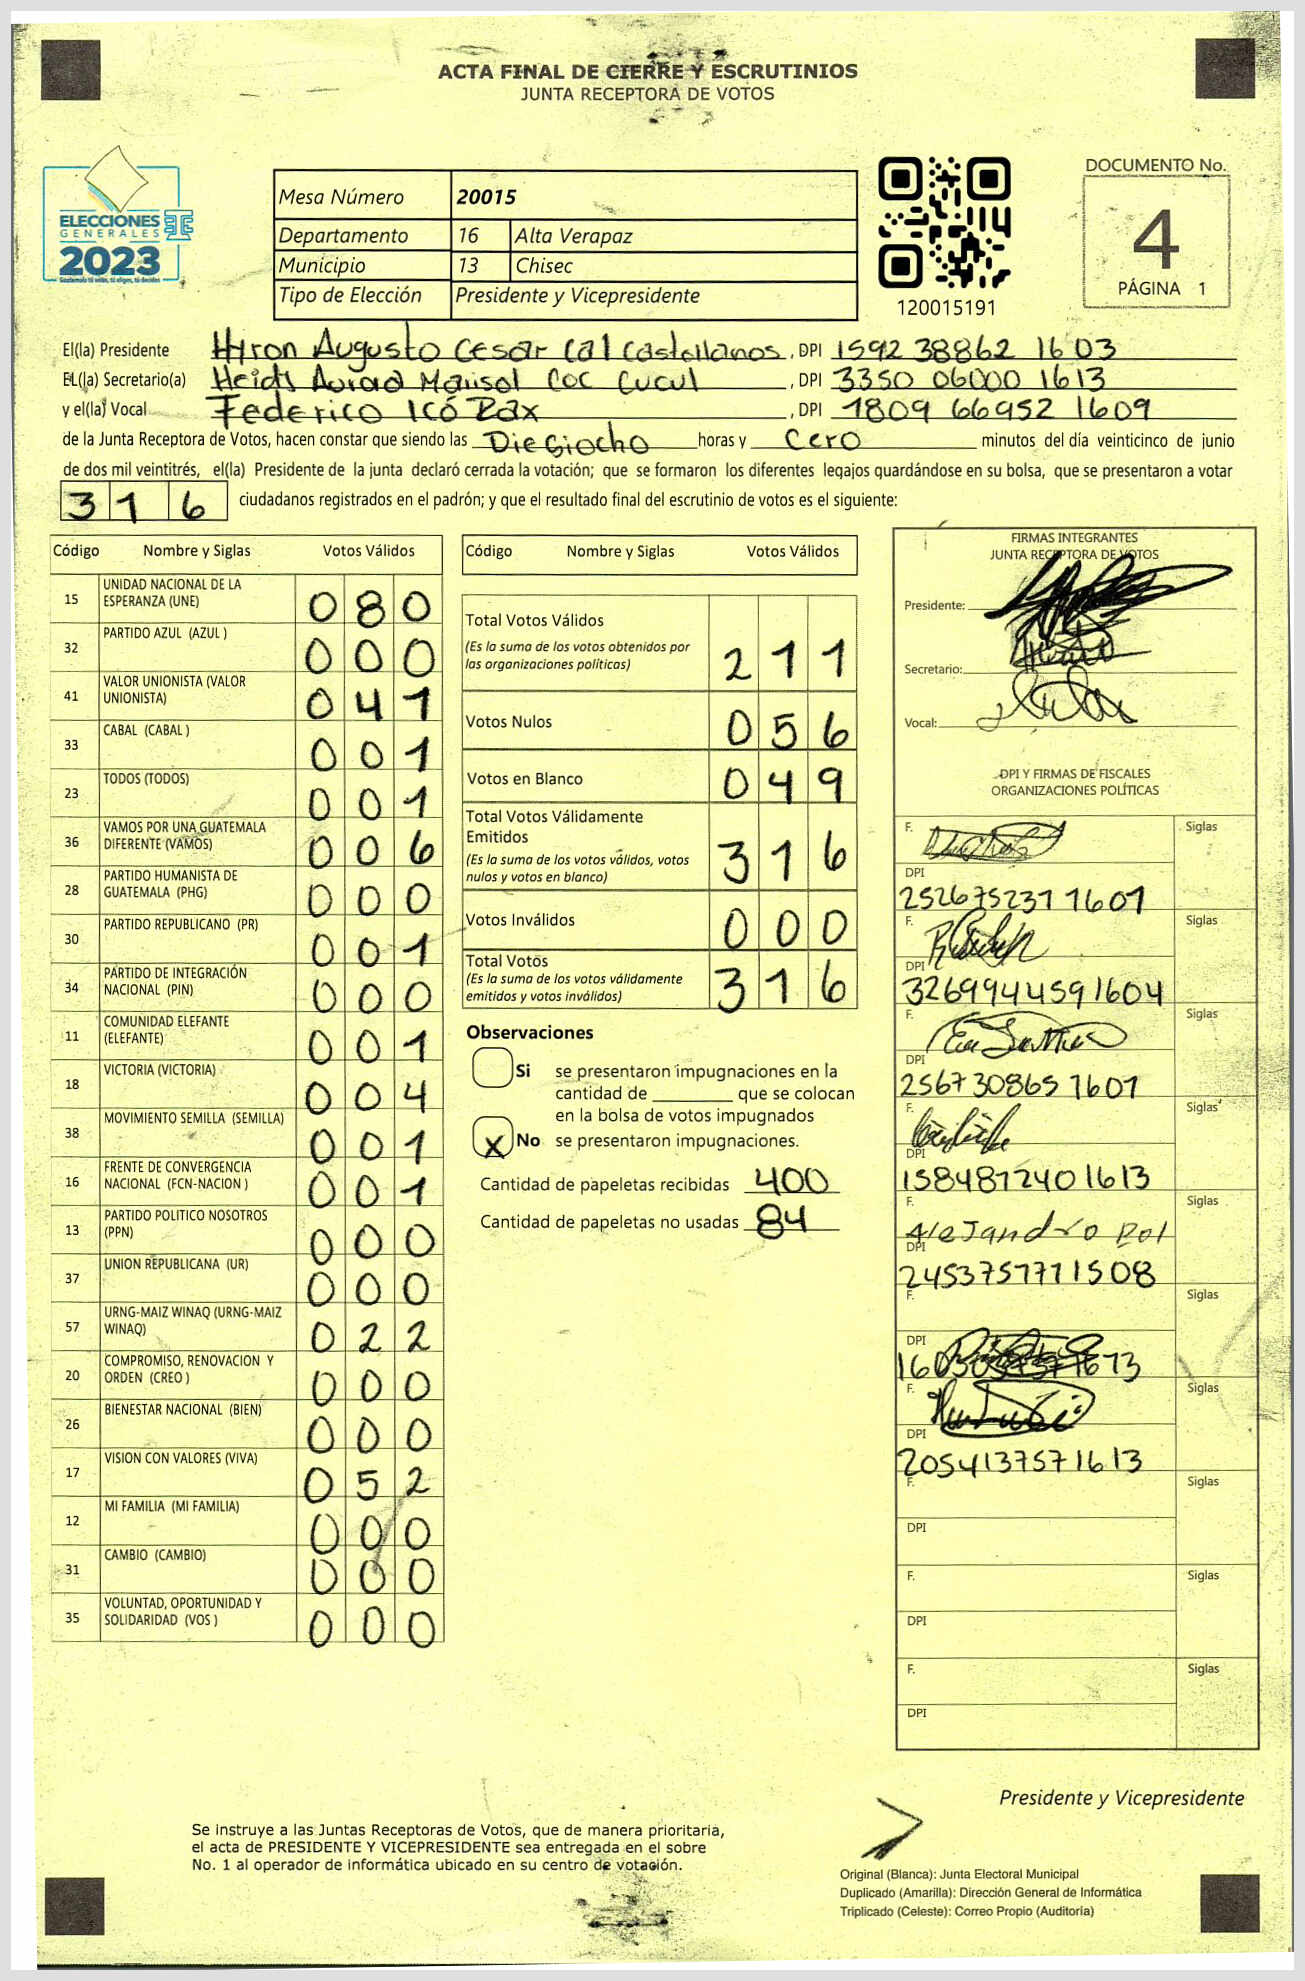 ACTA FINAL DE CIERRE Y ESCRUTINIOS
JUNTA RECEPTORA DE VOTOS
ELECCIONES
GENERALES
2023
Mesa Número 20015
Departamento 16 Alta Verapaz
Municipio 13 Chisec
Tipo de Elección Presidente y Vicepresidente
120015191
DOCUMENTO No.
4
PÁGINA 1
El(la) Presidente Hyron Augusto Cesar Cal Castellanos, DPI 1592 38862 1603
EL(la) Secretario(a) Heidy Aurad Marisol Coc Cucul, DPI 3350 06000 1613
y el(la) Vocal Federico Icó Pax, DPI 1809 66952 1609
de la Junta Receptora de Votos, hacen constar que siendo las Dieciocho horas y Cero minutos del día veinticinco de junio
de dos mil veintitrés, el(la) Presidente de la junta declaró cerrada la votación; que se formaron los diferentes legajos quardándose en su bolsa, que se presentaron a votar
316 ciudadanos registrados en el padrón; y que el resultado final del escrutinio de votos es el siguiente:
Código Nombre y Siglas Votos Válidos
15 UNIDAD NACIONAL DE LA ESPERANZA (UNE) 080
32 PARTIDO AZUL (AZUL ) 000
41 VALOR UNIONISTA (VALOR UNIONISTA) 041
33 CABAL (CABAL ) 001
23 TODOS (TODOS) 001
36 VAMOS POR UNA GUATEMALA DIFERENTE (VAMOS) 006
28 PARTIDO HUMANISTA DE GUATEMALA (PHG) 000
30 PARTIDO REPUBLICANO (PR) 001
34 PARTIDO DE INTEGRACIÓN NACIONAL (PIN) 000
11 COMUNIDAD ELEFANTE (ELEFANTE) 001
18 VICTORIA (VICTORIA) 004
38 MOVIMIENTO SEMILLA (SEMILLA) 001
16 FRENTE DE CONVERGENCIA NACIONAL (FCN-NACION ) 001
13 PARTIDO POLITICO NOSOTROS (PPN) 000
37 UNION REPUBLICANA (UR) 000
57 URNG-MAIZ WINAQ (URNG-MAIZ WINAQ) 022
20 COMPROMISO, RENOVACION Y ORDEN (CREO ) 000
26 BIENESTAR NACIONAL (BIEN) 000
17 VISION CON VALORES (VIVA) 052
12 MI FAMILIA (MI FAMILIA) 000
31 CAMBIO (CAMBIO) 000
35 VOLUNTAD, OPORTUNIDAD Y SOLIDARIDAD (VOS ) 000
Código Nombre y Siglas Votos Válidos
Total Votos Válidos 211
(Es la suma de los votos obtenidos por
las organizaciones políticas)
Votos Nulos 056
Votos en Blanco 049
Total Votos Válidamente
Emitidos 316
(Es la suma de los votos válidos, votos
nulos y votos en blanco)
Votos Inválidos 000
Total Votos 316
(Es la suma de los votos válidamente
emitidos y votos inválidos)
Observaciones
Si se presentaron impugnaciones en la
cantidad de ________ que se colocan
en la bolsa de votos impugnados
X No se presentaron impugnaciones.
Cantidad de papeletas recibidas 400
Cantidad de papeletas no usadas 84
FIRMAS INTEGRANTES
JUNTA RECEPTORA DE VOTOS
Presidente:
Secretario:
Vocal:
DPI Y FIRMAS DE FISCALES
ORGANIZACIONES POLÍTICAS
F. Siglas
DPI
252675237 1601
F. Siglas
DPI
3269944591604
F. Siglas
DPI
256730865 1601
F. Siglas
DPI
1584872401613
F. Alejandro Pol Siglas
DPI
2453757771508
F. Siglas
DPI
F. Siglas
DPI
2054137571613
F. Siglas
DPI
F. Siglas
DPI
F. Siglas
DPI
Presidente y Vicepresidente
Se instruye a las Juntas Receptoras de Votos, que de manera prioritaria,
el acta de PRESIDENTE Y VICEPRESIDENTE sea entregada en el sobre
No. 1 al operador de informática ubicado en su centro de votación.
Original (Blanca): Junta Electoral Municipal
Duplicado (Amarilla): Dirección General de Informática
Triplicado (Celeste): Correo Propio (Auditoría)